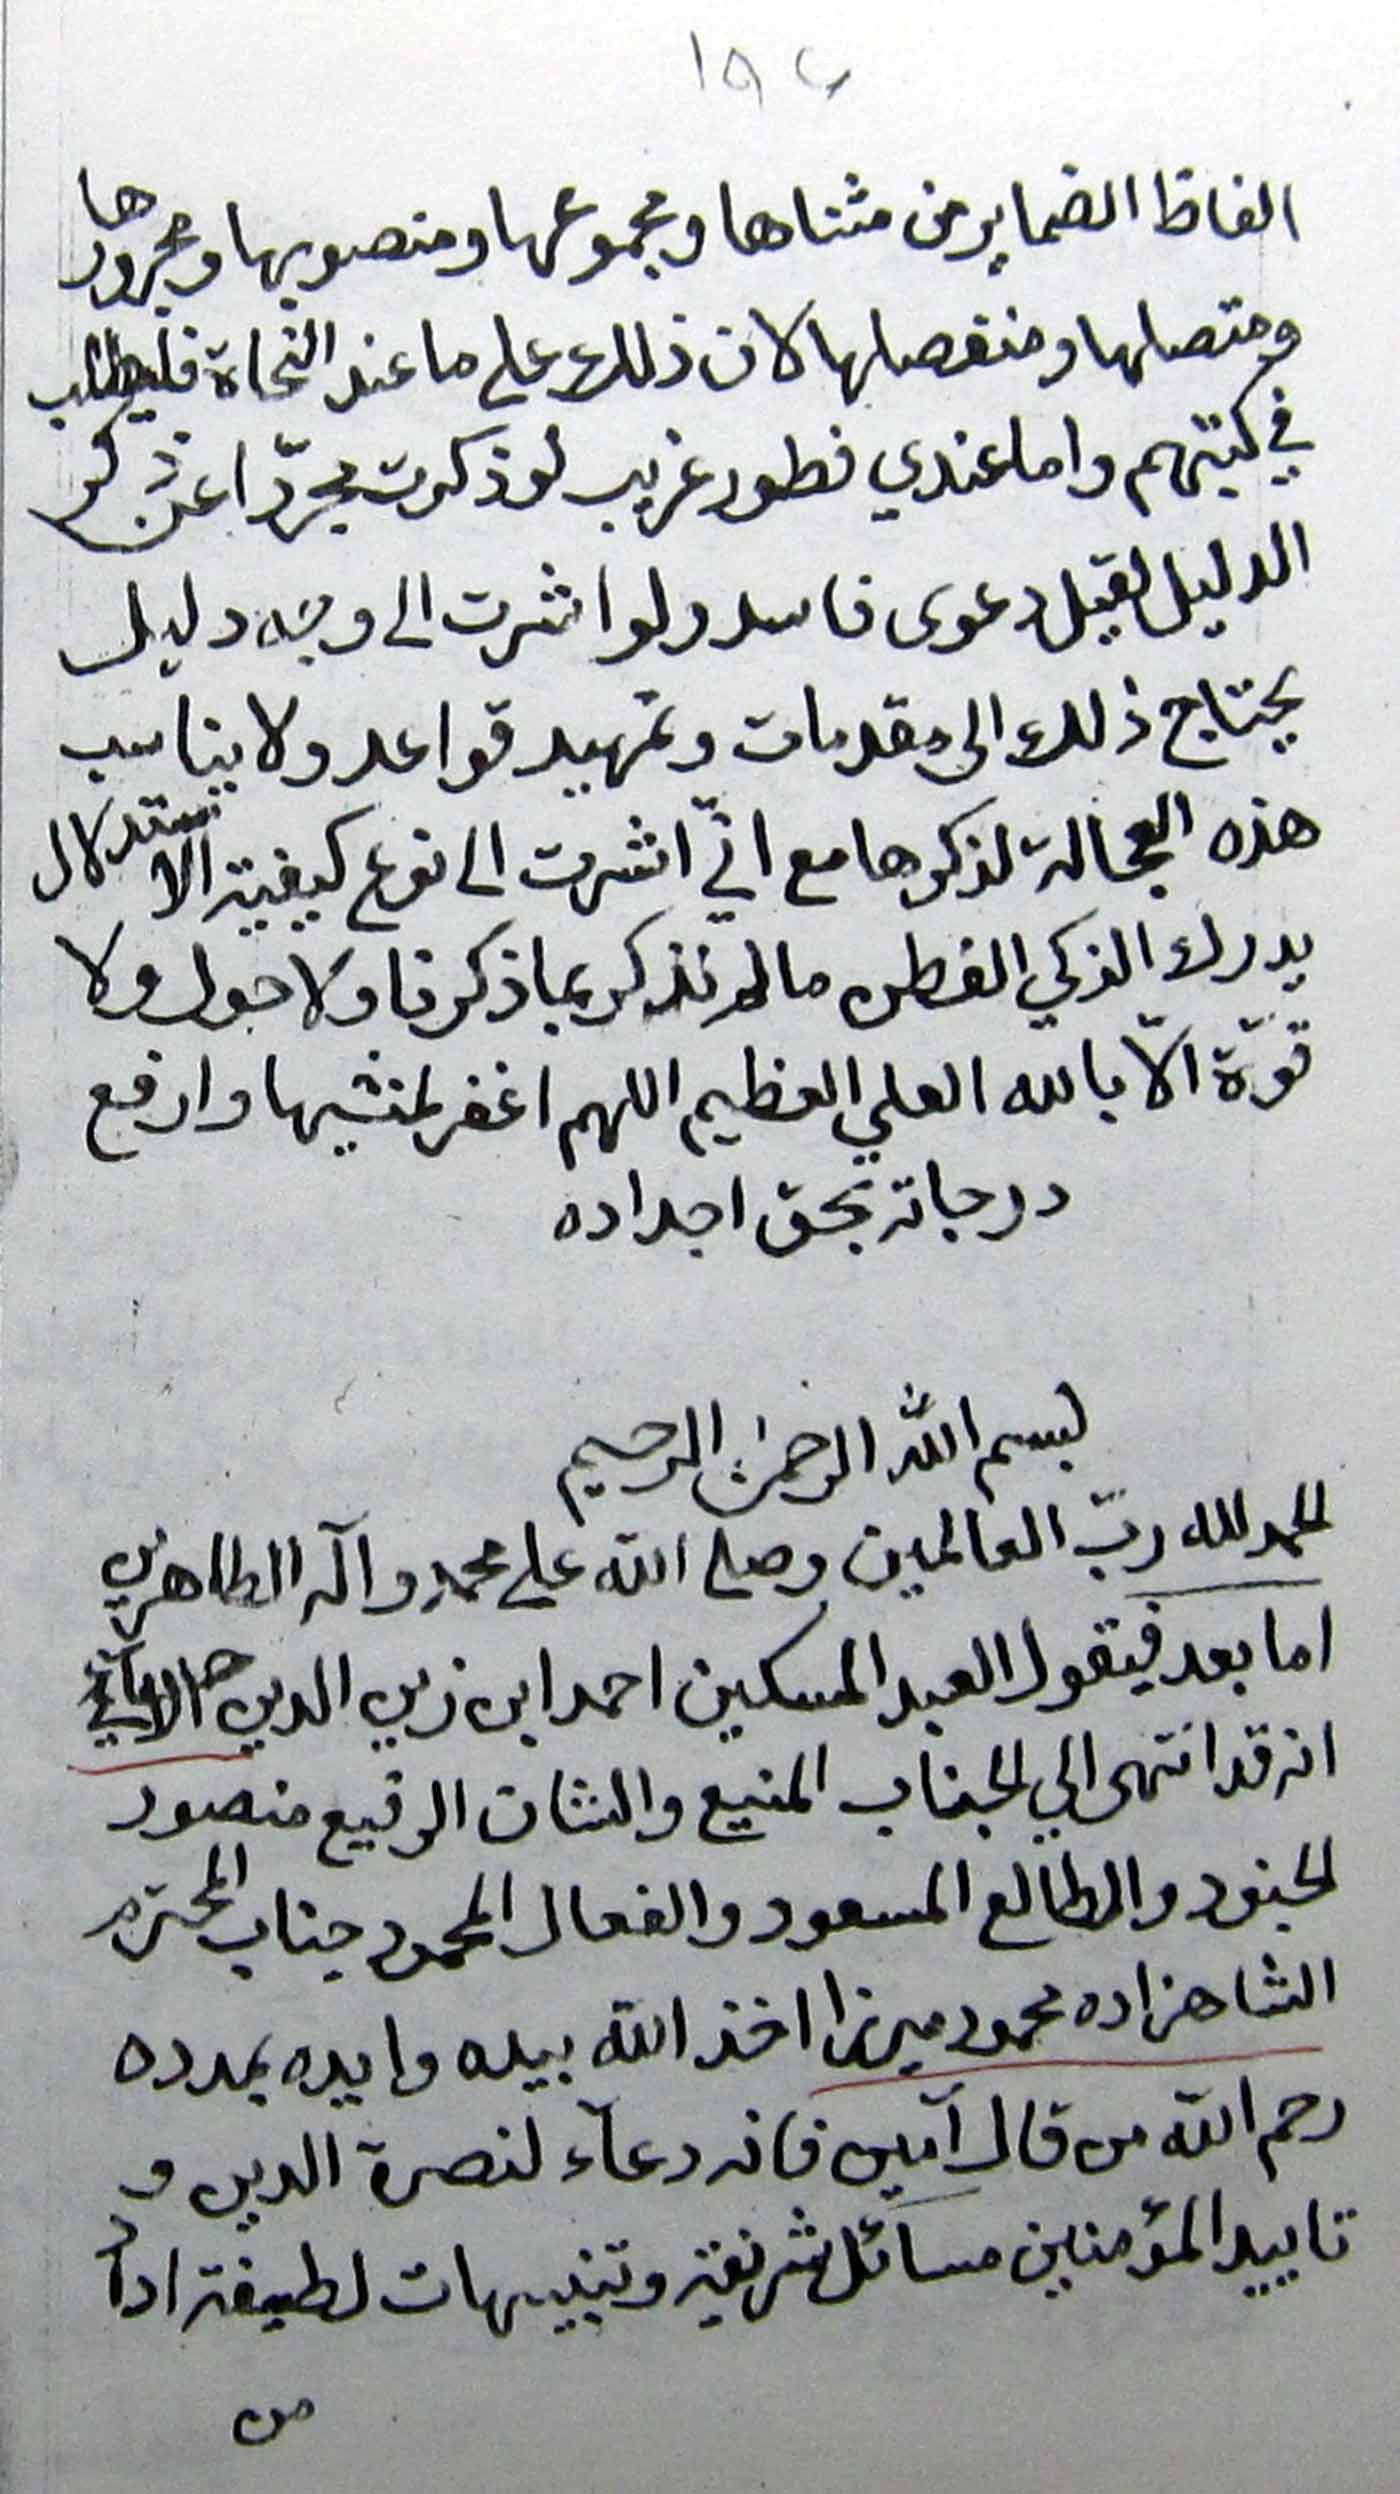 الفاظ الضماير من مثناها ومجموعها ومنصوبها ومجرورها
ومتصلها ومنفصلها لان ذلك على ما عند النحاة فليطلب
في كتبهم واما عندي فطور غريب لو ذكرت مجرّدا عن ذكر
الدليل لقيل دعوى فاسد ولو اشرت الى وجه دليل
يحتاج ذلك الى مقدمات وتمهيد قواعد ولا يناسب
هذه العجالة لذكرها مع انّي اشرت الى نوع كيفية الاستدلال
يدرك الذكي الفطن ما لم نذكر بما ذكرنا ولا حول ولا
قوّة الاّ بالله العلي العظيم اللهم اغفر لمنشيها وارفع
درجاته بحق اجداده
بسم الله الرحمن الرحيم
الحمد لله ربّ العالمين وصلى الله على محمد وآله الطاهرين
اما بعد فيقول العبد المسكين احمد ابن زين الدين الاحسائي
انه قد انتهى الي الجناب المنيع والشان الرفيع منصور
الجنود والطالع المسعود والفعال المحمود جناب المحترم
الشاهزاده محمود ميرزا اخذ الله بيده وايده بمدده
رحم الله من قال آمين فانه دعآء لنصرة الدين و
تاييد المؤمنين مسائل شريفة وتنبيهات لطيفة اراد
من